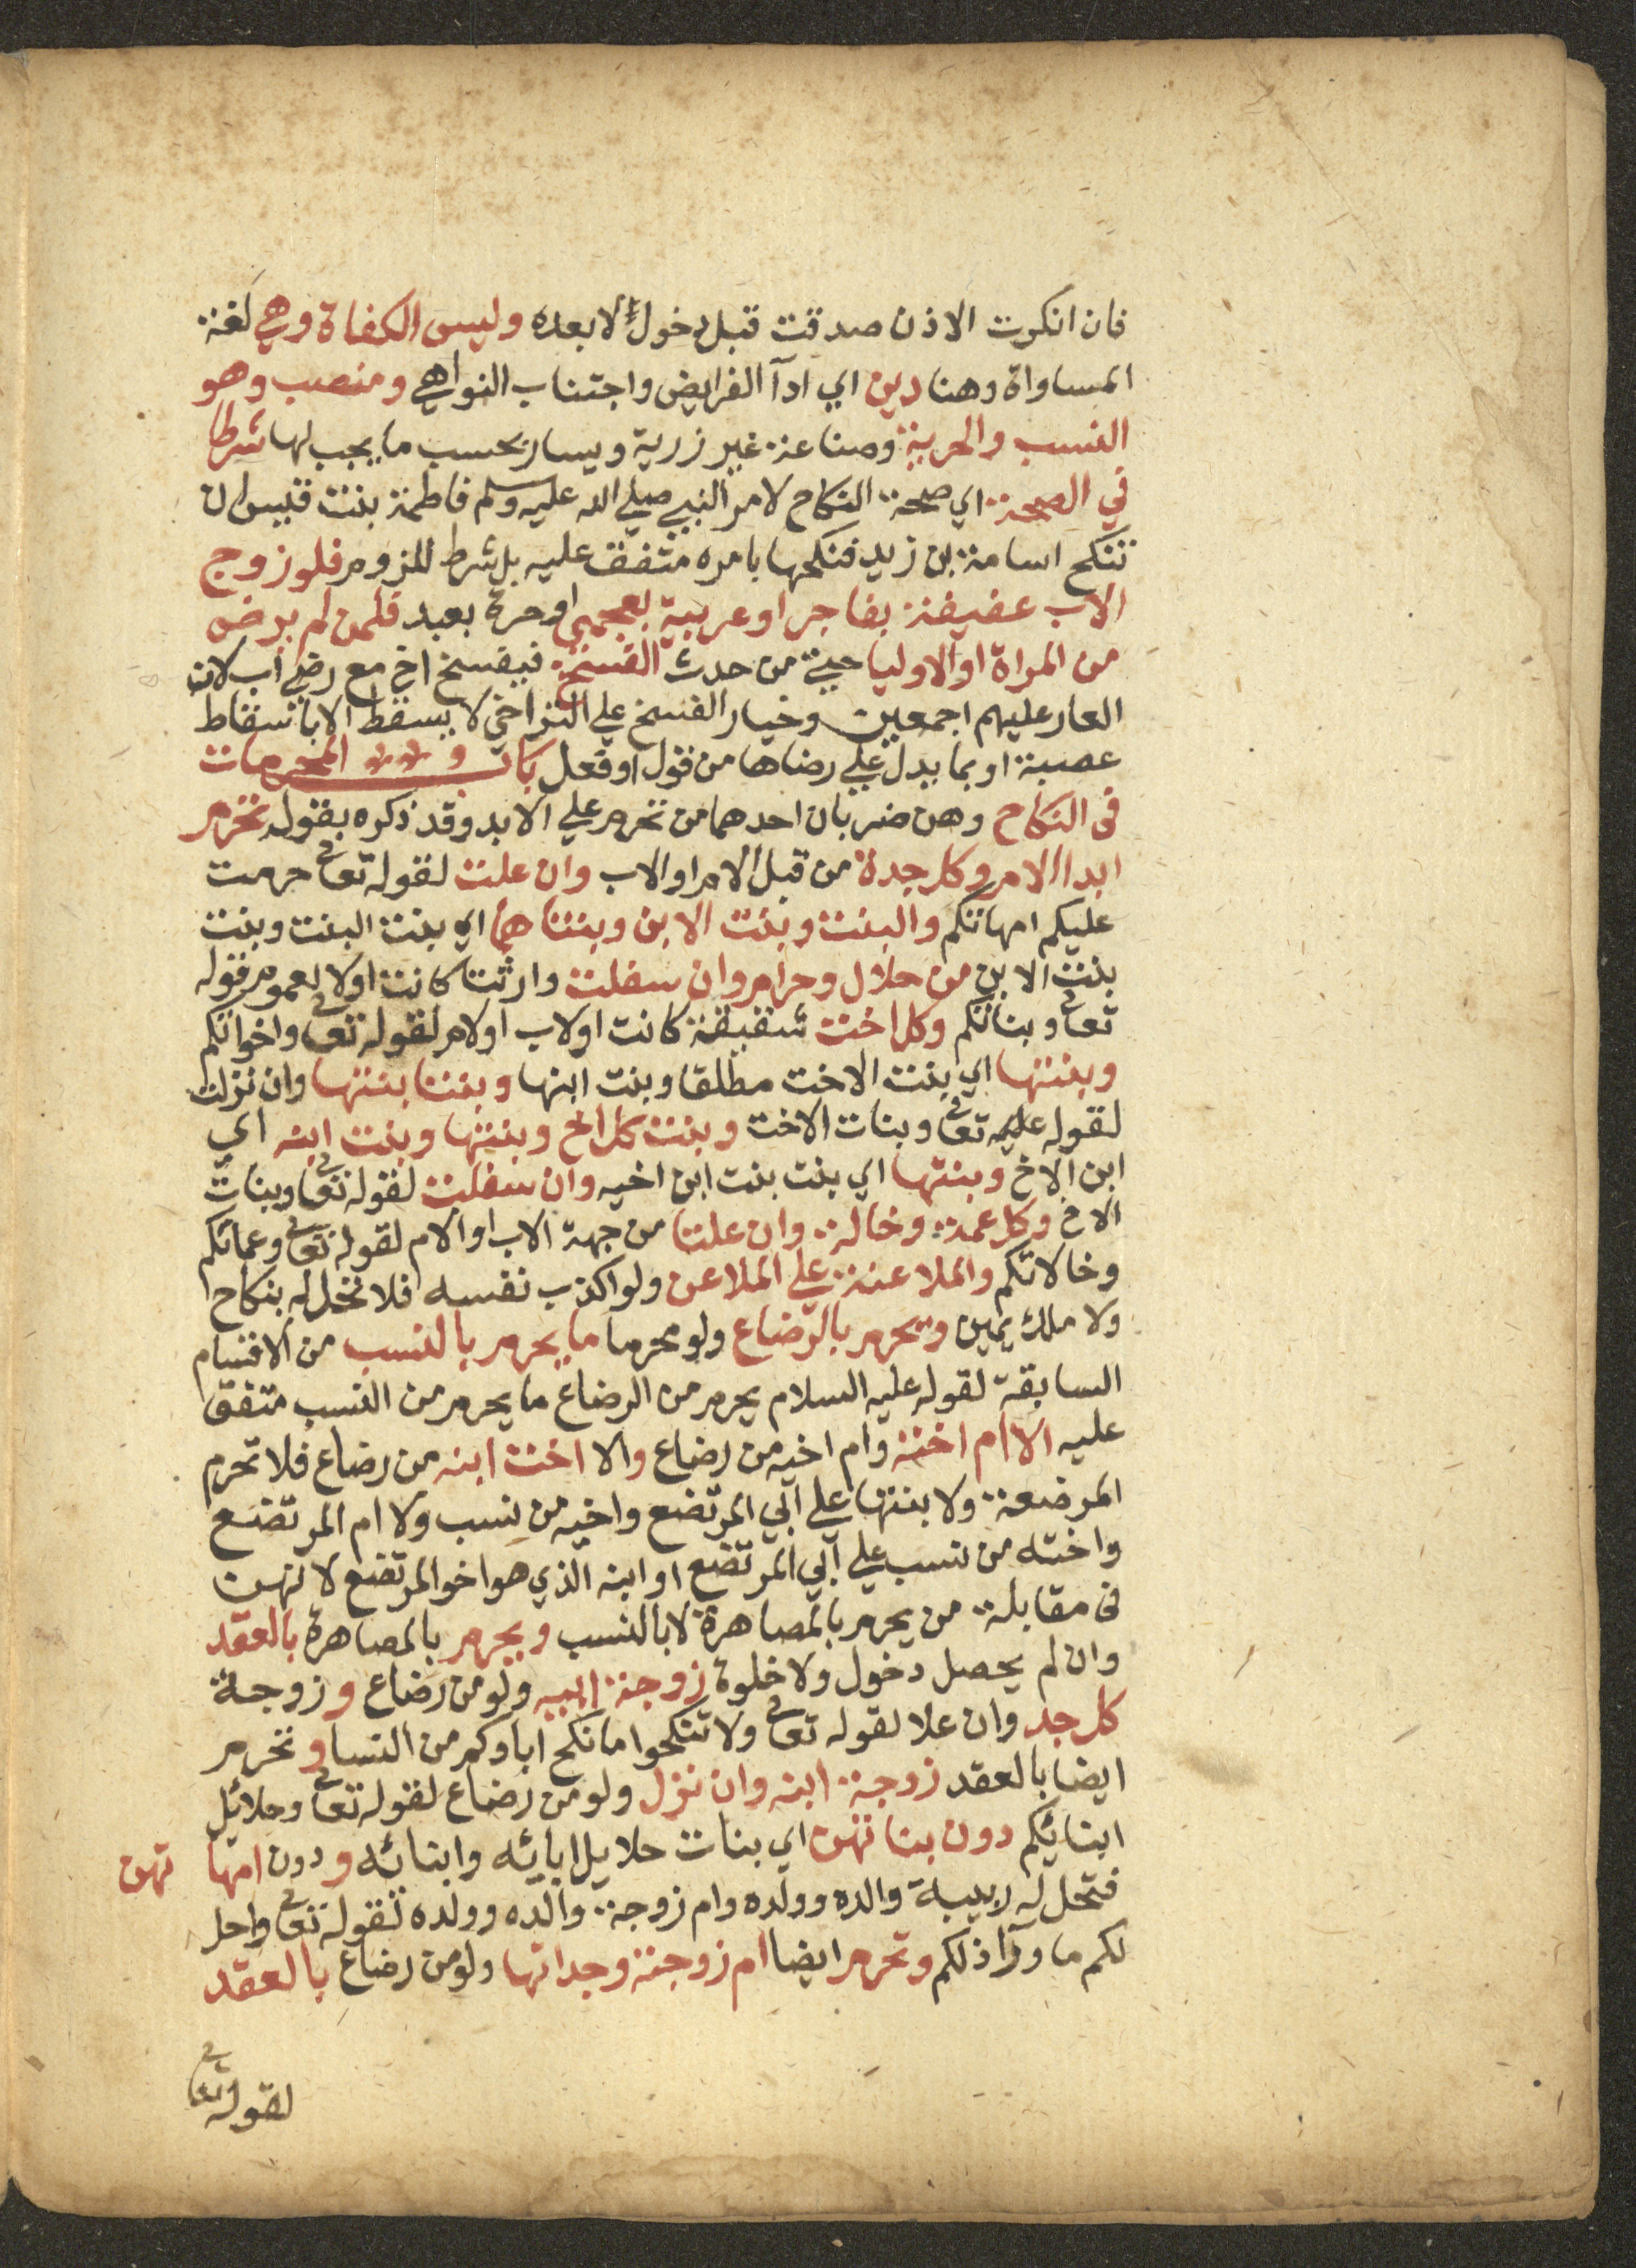 فان انكرت الاذن صدقت قبل دخول لا بعده وليس الكفاة وهي لغة
المساواة وهنا دين اي ادآ الفرايض واجتناب النواهي ومنصب وهو
النسب والحرية وصناعة غير زرية ويسار بحسب ما يجب لها شرطا
في الصحة اي صحة النكاح لامر النبي صلي الله عليه وسلم فاطمة بنت قيس ان
تنكح اسامة بن زيد فنكحها بامره متفق عليه بل شرط للزوم فلو زوج
الاب عفيفة بفاجر او عربية بعجمي او حرة بعبد فلمن لم يرض
من المراة او الاوليا حتي من حدث الفسخ فيفسخ اخ مع رضي اب لان
العار عليهم اجمعين وخيار الفسخ علي التراخي لا يسقط الا باسقاط
عصبة او بما يدل علي رضاها من قول او فعل باب المحرمات
في النكاح وهن ضربان احدهما من تحرم علي الابد وقد ذكره بقوله تحرم
ابدا الام وكل جدة من قبل الام او الاب وان علت لقوله تعالي حرمت
عليكم امهاتكم والبنت وبنت الابن وبنتاهما اي بنت البنت وبنت
بنت الابن من حلال وحرام وان سفلت وارثة كانت اولا لعموم قوله
تعالي وبناتكم وكل اخت شقيقة كانت او لاب او لام لقوله تعالي واخواتكم
وبنتها اي بنت الاخت مطلقا وبنت ابنها وبنت بنتها وان نزلت
لقوله تعالي وبنات الاخت وبنت كل اخ وبنتها وبنت ابنه اي
ابن الاخ وبنتها اي بنت بنت ابن اخيه وان سفلت لقوله تعالي وبنات
الاخ وكل عمة وخالة وان علتا من جهة الاب او الام لقوله تعالي وعماتكم
وخالاتكم والملاعنة علي الملاعن ولو اكذب نفسه فلا تحل له بنكاح
ولا ملك يمين وتحرم بالرضاع ولو محرما ما يحرم بالنسب من الاقسام
السابقة لقوله عليه السلام يحرم من الرضاع ما يحرم من النسب متفق
عليه الا ام اخته وام اخيه من رضاع والا اخت ابنه من رضاع فلا تحرم
المرضعة ولا بنتها علي ابي المرتضع واخيه من نسب ولا ام المرتضع
واخته من نسب علي ابي المرتضع او ابنه الذي هو اخو المرتضع لانهن
في مقابلة من يحرم بالمصاهرة لا بالنسب ويحرم بالمصاهرة بالعقد
وان لم يحصل دخول ولا خلوة زوجة ابيه ولو من رضاع وزوجة
كل جد وان علا لقوله تعالي ولا تنكحوا ما نكح اباوكم من النسا وتحرم
ايضا بالعقد زوجة ابنه وان نزل ولو من رضاع لقوله تعالي وحلائل
ابنائكم دون بناتهن اي بنات حلايل ابائه وابنائه ودون امهاتهن
فتحل له ربيبة والده وولده وام زوجة والده وولده لقوله تعالي واحل
لكم ما ورآ ذلكم وتحرم ايضا ام زوجته وجداتها ولو من رضاع بالعقد
لقوله تعالي